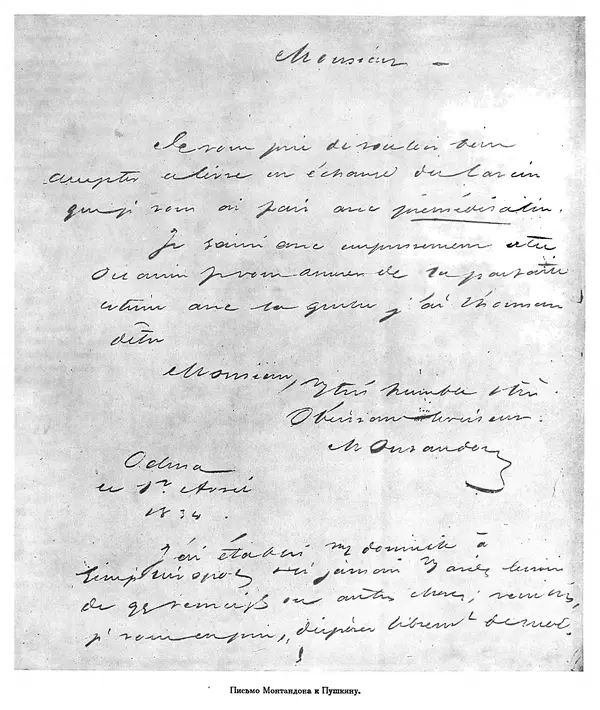 Monsieur –
Je vous prie de vouloir bien
accepter ce livre en échange du larcin
que je vous ai fais avec préméditation.
Je saisis avec empressement cette
Occasion p vous assurer de la parfaite
estime avec la quelle j'ai l'honneur
d'être
Monsieur, V très humble & très
Obéissant serviteur.
Montandon
Odessa
le 1er Avril
1834.
J'ai établi m domicile à
Simphéropol, si jamais V aviez besoin
de qq ou autres choses;
je vous en prie, disposer librement de moi.
Письмо Монтандона к Пушкину.